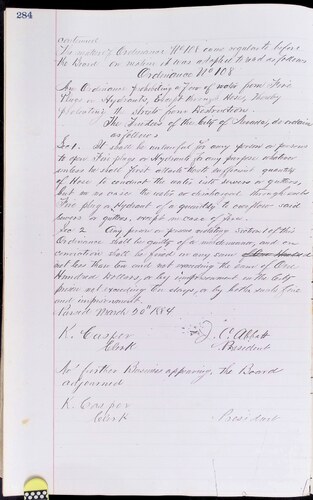 284
continued
The matter of Ordinance No 108 came regularly before
the Board on motion it was adopted to read as follows
Ordinance No 108
An Ordinance prohibiting flow of water from Fire
Plugs or Hydrants, except through Hose, thereby
protecting the streets from Destruction.
The Trustees of the City of do ordain
as follows
Sec 1. It shall be unlawful for any person or persons
to open Fire plugs or Hydrants for any purpose whatever
unless he shall first attach thereto sufficient quantity
of Hose to conduct the water into sewers or gutters,
but in no case the water so discharged through said
Fire plug or Hydrant of a quantity to overflow said
sewers or gutters, except in case of fire.
Sec 2 Any person or persons violating section 1 of this
Ordinance shall be guilty of a misdemeanor, and on
conviction shall be fined in any sum
not less than and not exceeding the sum of One
Hundred Dollars, or by imprisonment in the City
prison not exceeding days, or by both such fine
and imprisonment.
Passed March 20th 1884
K. Casper J. C. Abbott
Clerk President
No further Business appearing, the Board
adjourned
K. Casper
Clerk President